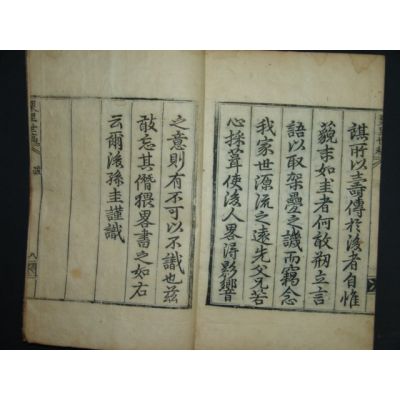 諆所以壽傳於後者自惟
藐末如圭者何敢剏立言
語以取架疊之譏而竊念
我家世源流之遠先父兄苦
心採葺使後人畧得影響
之意則有不可以不識也茲
敢忘其僭猥畧書之如右
云爾後孫圭謹識